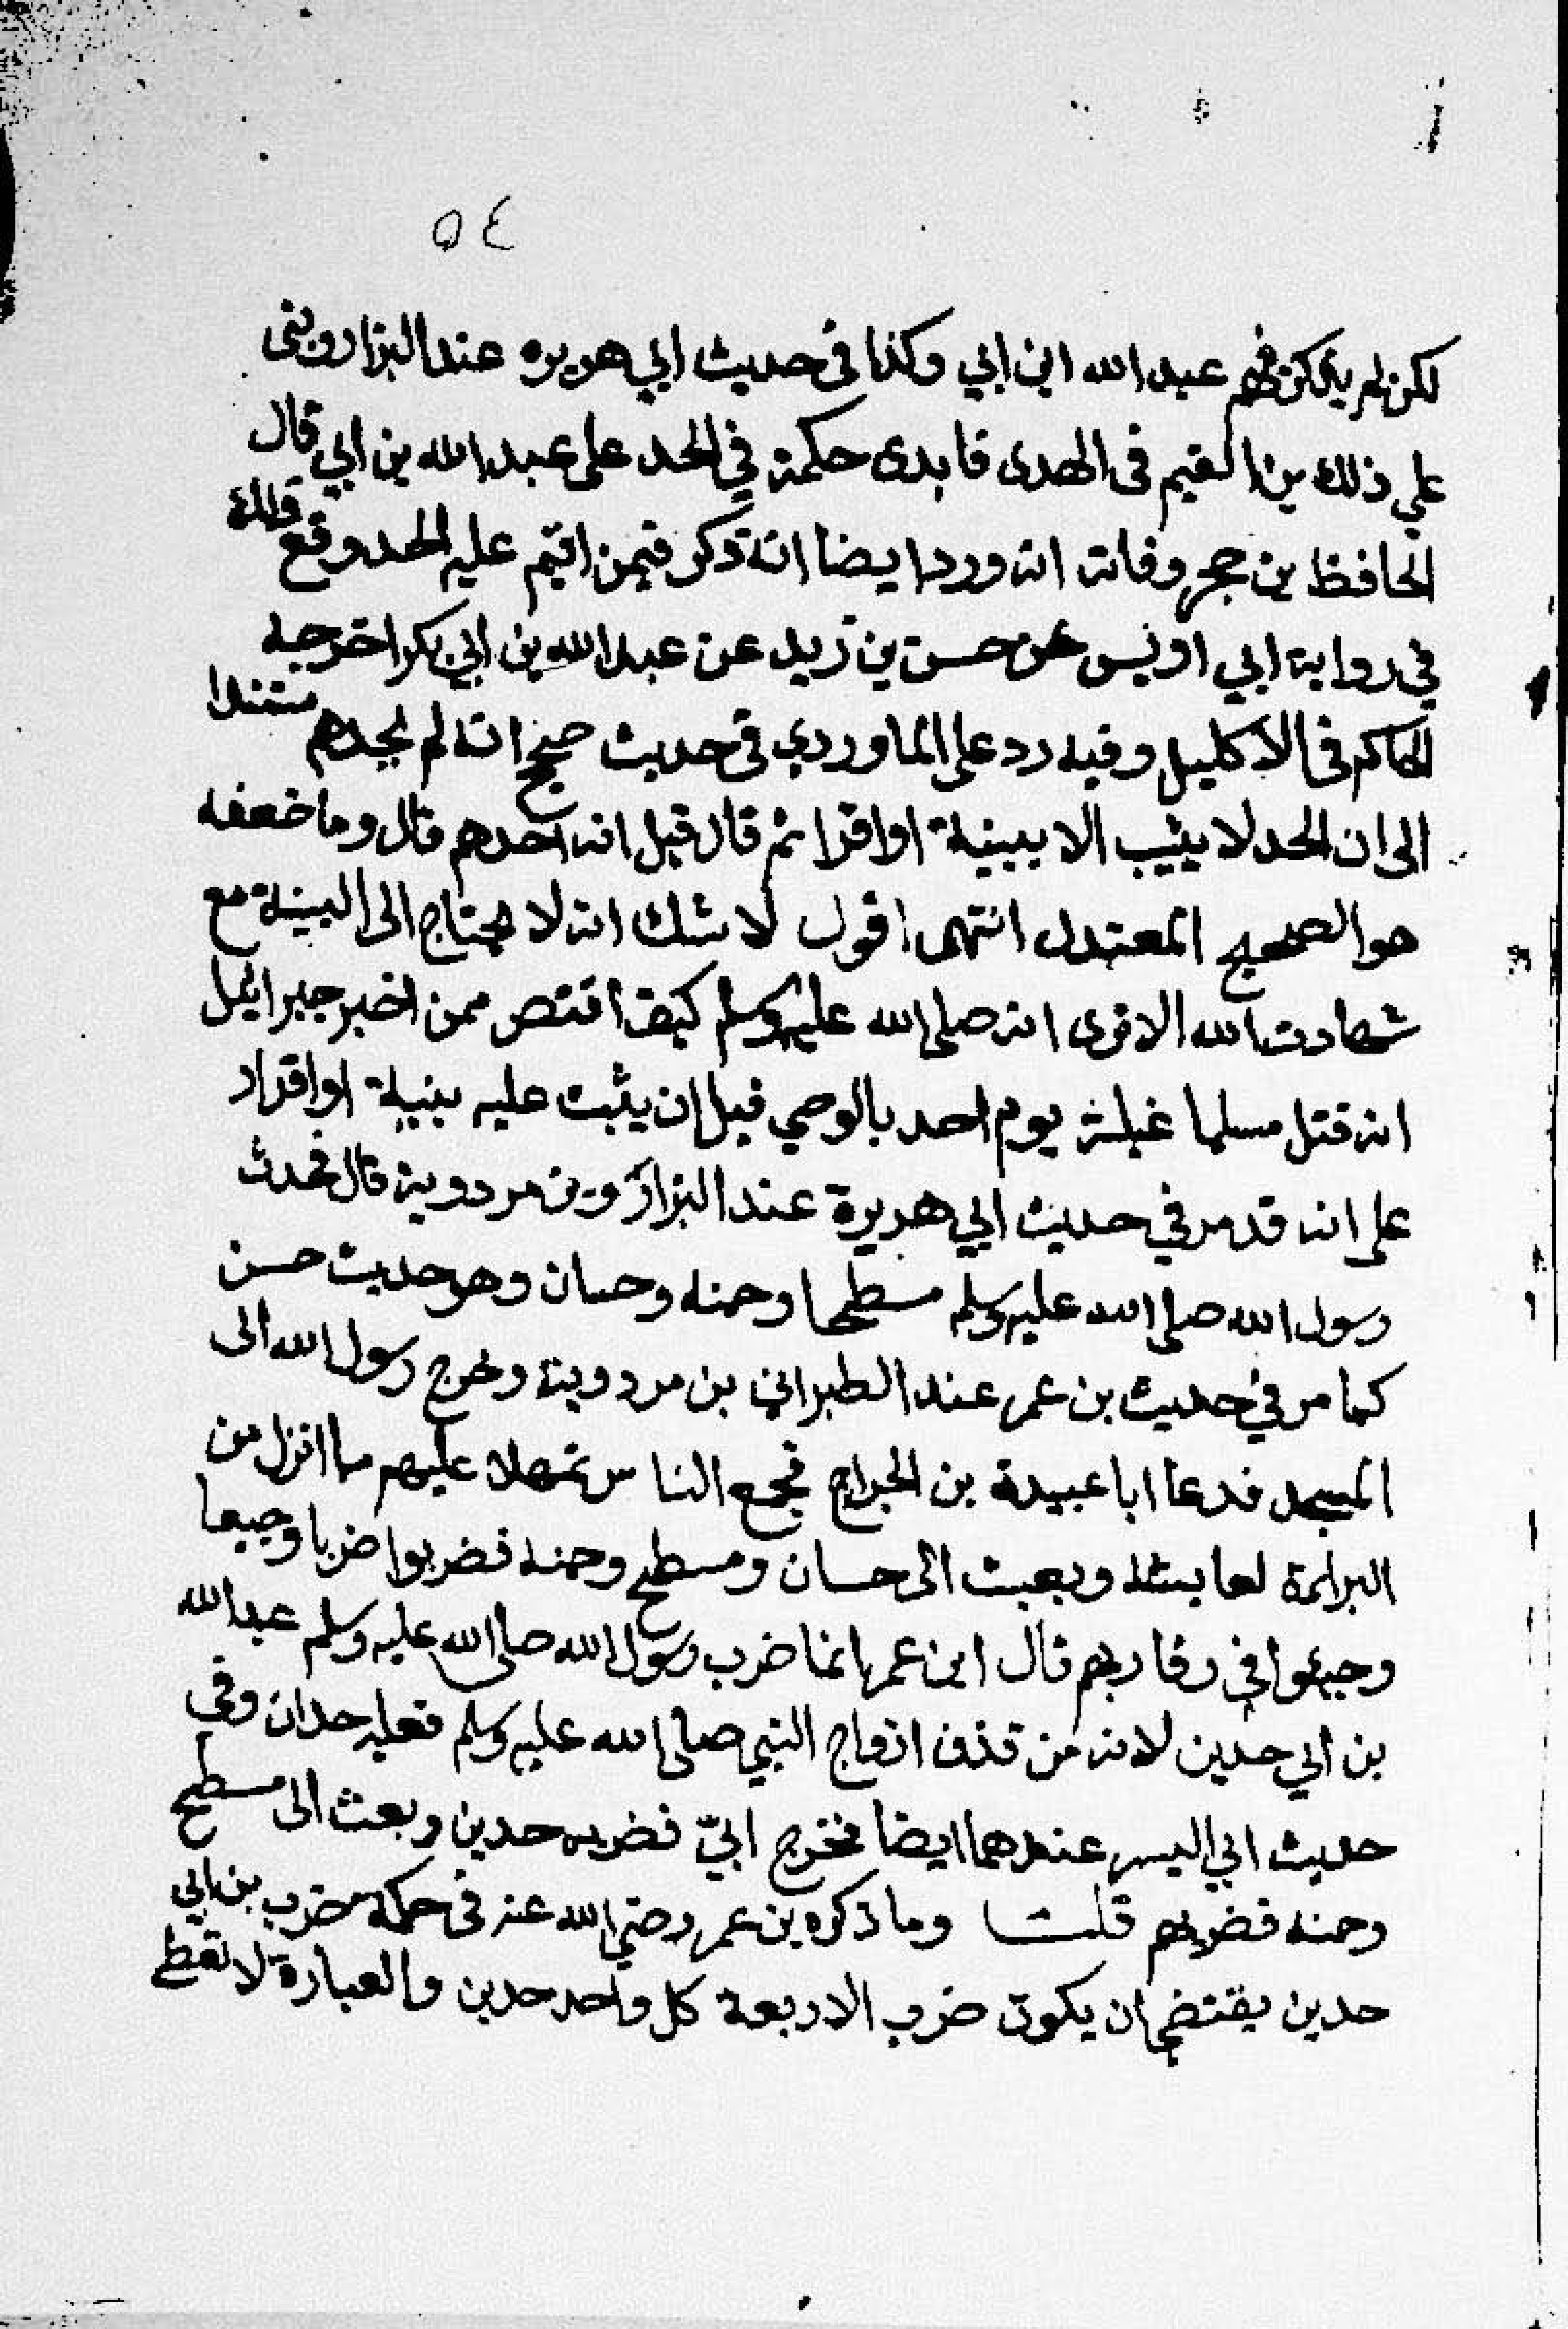 ٥٤
لكن لم يذكر فيهم عبد الله ابن ابي وكذا في حديث ابي هريره عند البزار وبنى
علي ذلك بن القيم في الهدى فابدى حكمة في الحد على عبد الله بن ابي قال
الحافظ بن حجر وفاته انه ورد ايضا انه ذكر فيمن اقيم عليه الحد وقع ذلك
في رواية ابي اويس عن حسن بن زيد عن عبد الله بن ابي بكر اخرجه
الحاكم في الاكليل وفيه رد على الماوردي في حديث صحيح انه لم يحدهم مستندا
الى ان الحد لا يثبت الا ببينة او اقرا ثم قال قيل انه احدهم قال وما ضعفه
هو الصحيح المعتدل انتهى اقول لا شك انه لا يحتاج الى البينة مع
شهادت الله الا ترى انه صلى الله عليه وسلم كيف اقتص ممن اخبر جبرائيل
انه قتل مسلما غيلة يوم احد بالوحي قبل ان يثبت عليه بينة او اقرار
على انه قد مر في حديث ابي هريرة عند البزار وبن مردوية قال فحدث
رسول الله صلى الله عليه وسلم مسطحا وحمنه وحسان وهو حديث حسن
كما مر في حديث بن عمر عند الطبراني بن مردوية وخرج رسول الله الى
المسجد فدعا ابا عبيدة بن الجراح فجمع الناس ثم تلا عليهم ما انزل من
البراءة لعايشة وبعث الى حسان ومسطح وحمنه فضربوا ضربا وجيعا
وجيعوا في رقابهم قال ابن عمر انما ضرب رسول الله صلى الله عليه وسلم عبد الله
بن ابي حدين لانه من قذف ازواج النبي صلى الله عليه وسلم فعليه حدان وفي
حديث ابي اليسر عندهما ايضا فخرج ابيّ فضربه حدين وبعث الى مسطح
وحمنه فضربهم قلت وما ذكره بن عمر رضي الله عنه في حكمة ضرب بن ابي
حدين يقتضي ان يكون ضرب الاربعة كل واحد حدين والعبارة لا تعط